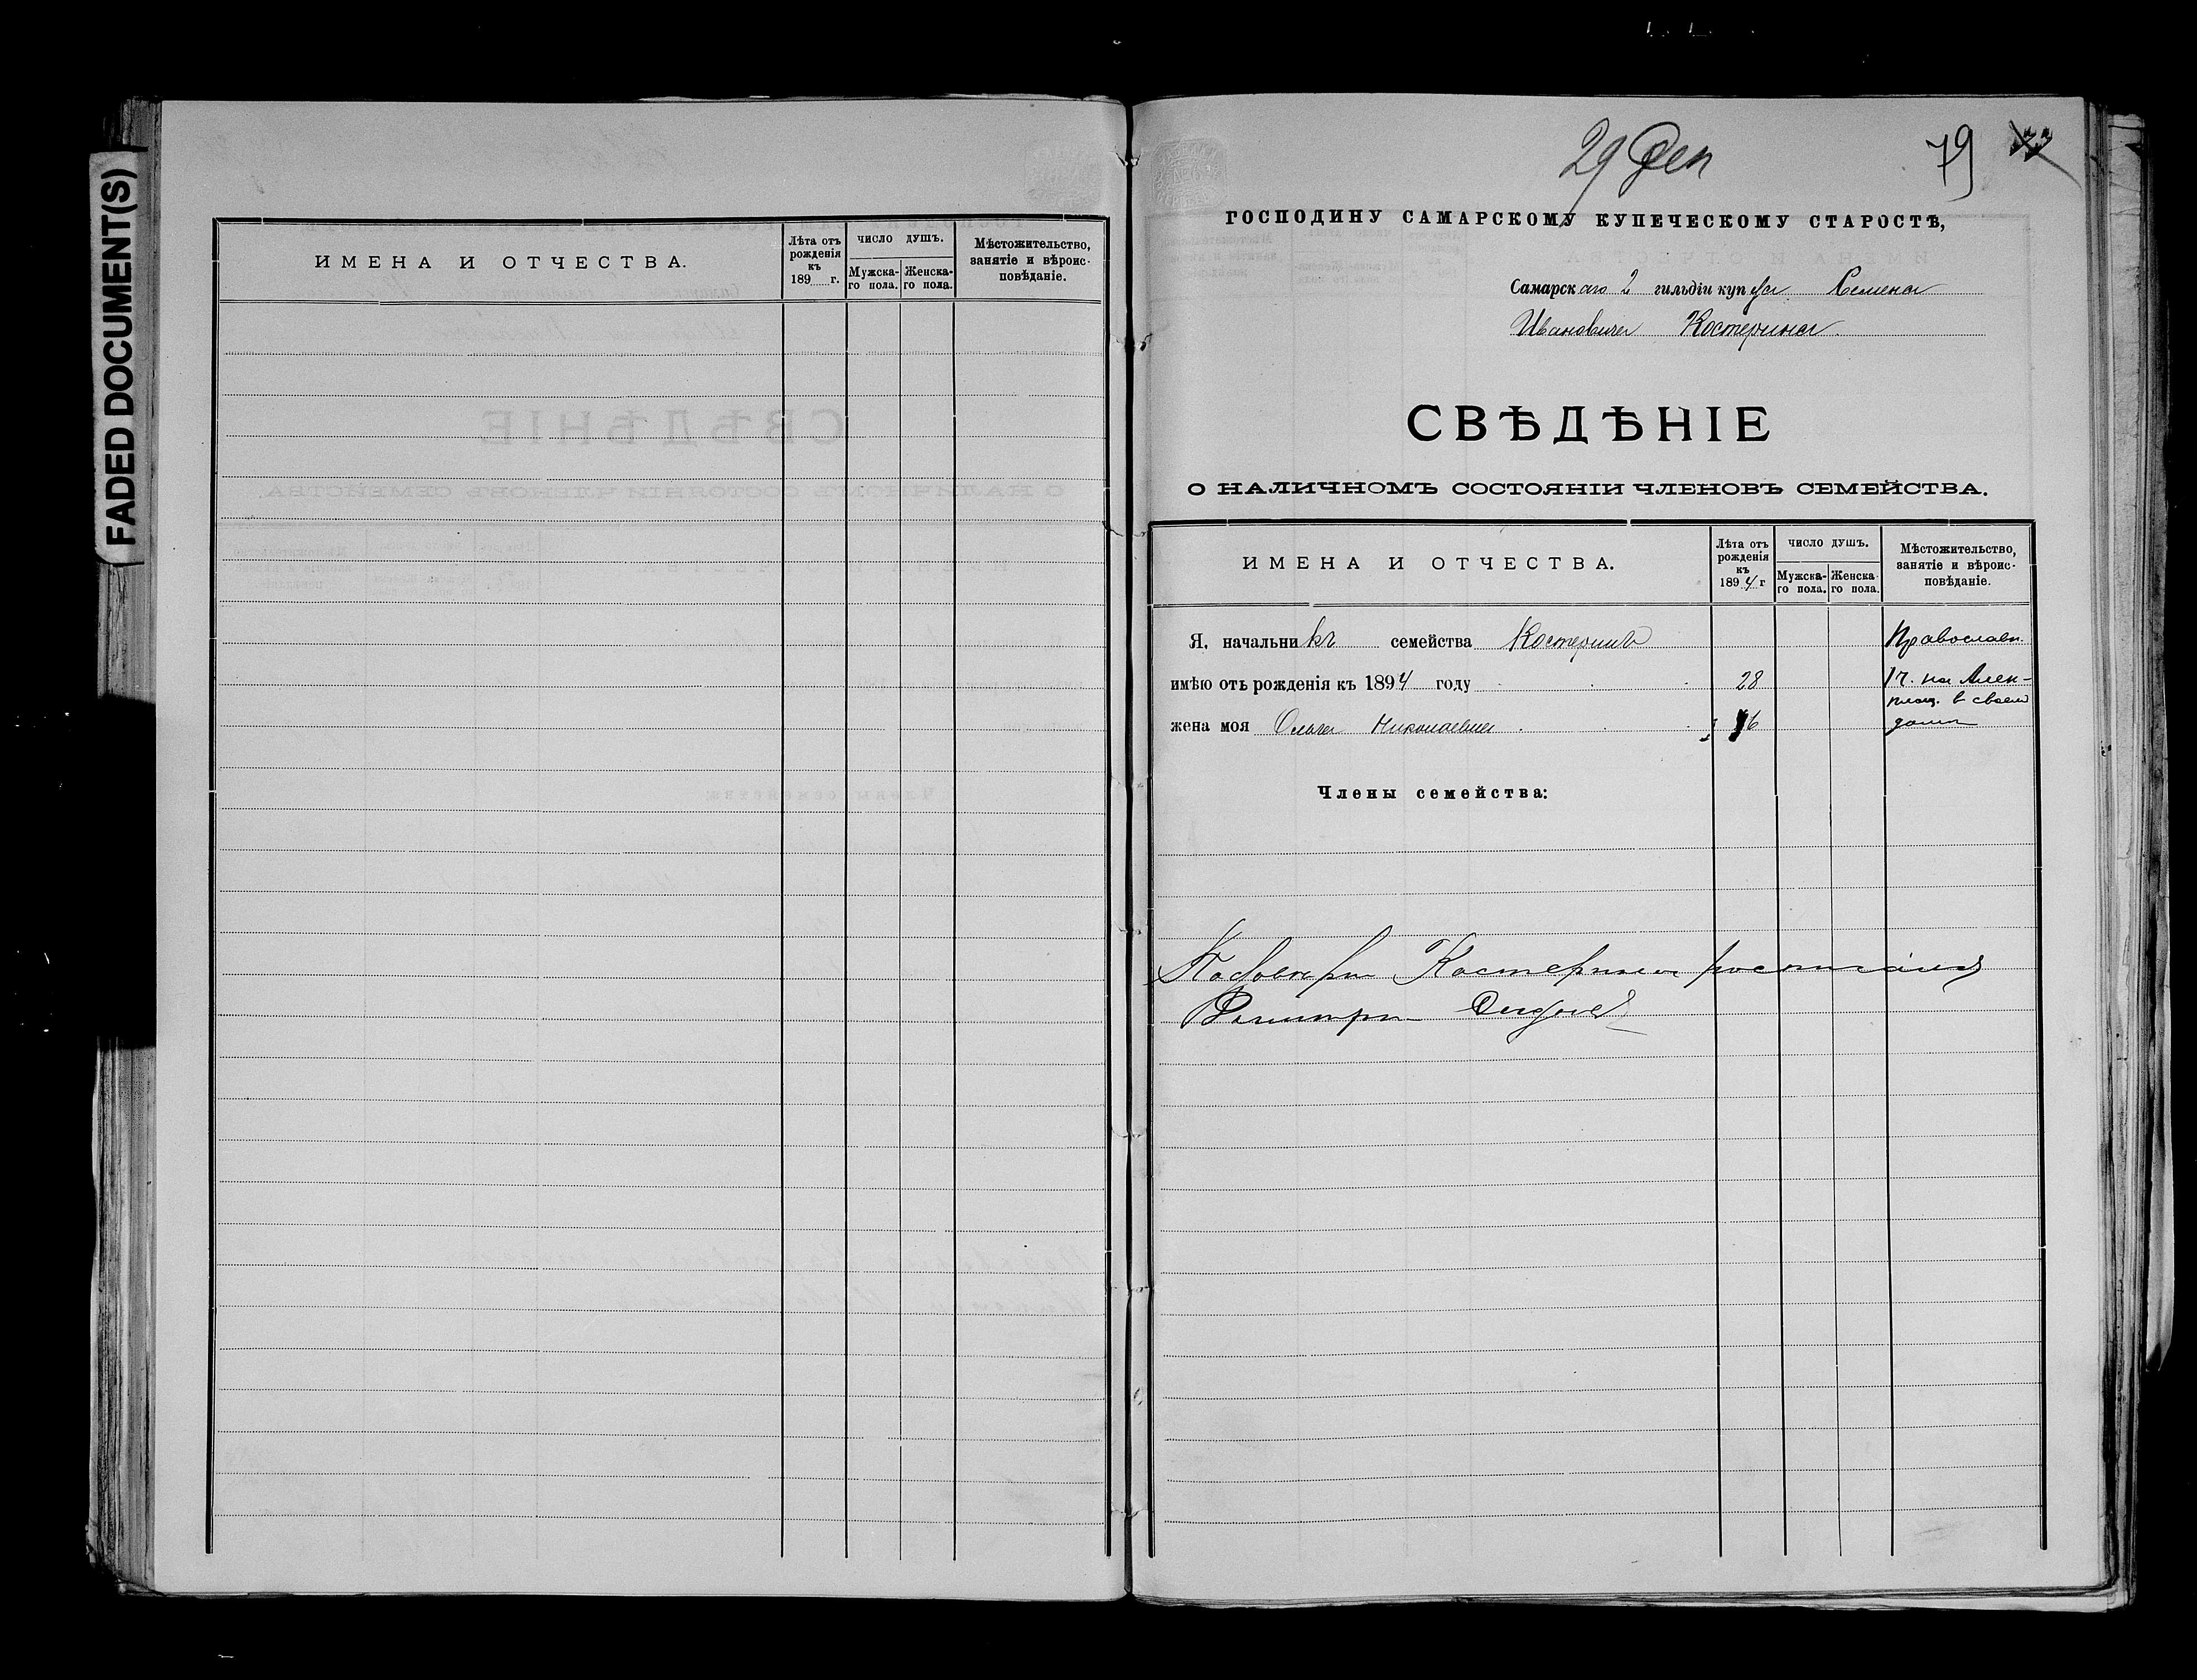 FADED DOCUMENT(S)
ИМЕНА И ОТЧЕСТВА.
Лѣта отъ рожденія къ 189 г.
ЧИСЛО ДУШЪ.
Мужска-го пола.
Женска-го пола.
Мѣстожительство, занятіе и вѣроис-повѣданіе.
29 Дек
79
ГОСПОДИНУ САМАРСКОМУ КУПЕЧЕСКОМУ СТАРОСТѢ,
Самарскаго 2 гильдіи купца Семена
Ивановича Костерина
СВѢДѢНІЕ
О НАЛИЧНОМЪ СОСТОЯНІИ ЧЛЕНОВЪ СЕМЕЙСТВА.
ИМЕНА И ОТЧЕСТВА.
Лѣта отъ рожденія къ 1894 г
ЧИСЛО ДУШЪ.
Мужска-го пола.
Женска-го пола.
Мѣстожительство, занятіе и вѣроис-повѣданіе.
Я, начальникъ семейства Костеринъ Православн.
имѣю отъ рожденія къ 1894 году 28 1 ч. на Алек-
площ. в своем
жена моя Ольга Николаевна домѣ
Члены семейства:
Костерина росписался